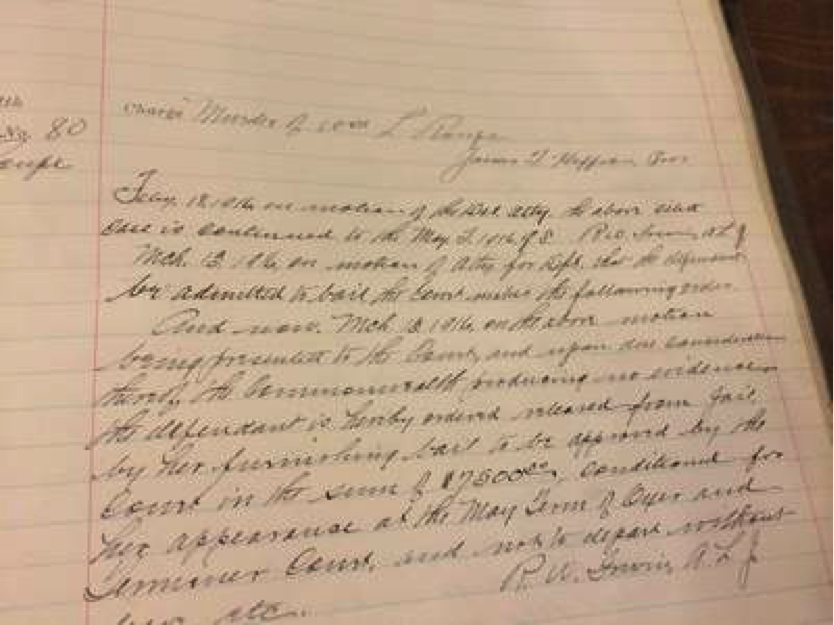 No. 80
Charge Murder of Wm L. Range
James T Heffran Pros
Feby. 18, 1916, on motion of the Dist. Atty. the above
case is continued to the May T. 1916. R.W. Irwin, A L J
Mch. 13, 1916, on motion of Attys for Deft. that the defendant
be admitted to bail the Court makes the following order.
And now, Mch 13, 1916, on the above motion
being presented to the Court, and upon due consideration
thereof, the Commonwealth producing no evidence,
the defendant is hereby ordered released from jail,
by her furnishing bail to be approved by the
Court in the sum of $7500.00, conditioned for
her appearance at the May Term of Oyer and
Terminer Court, and not to depart without
R. W. Irwin, A. L. J.
etc.